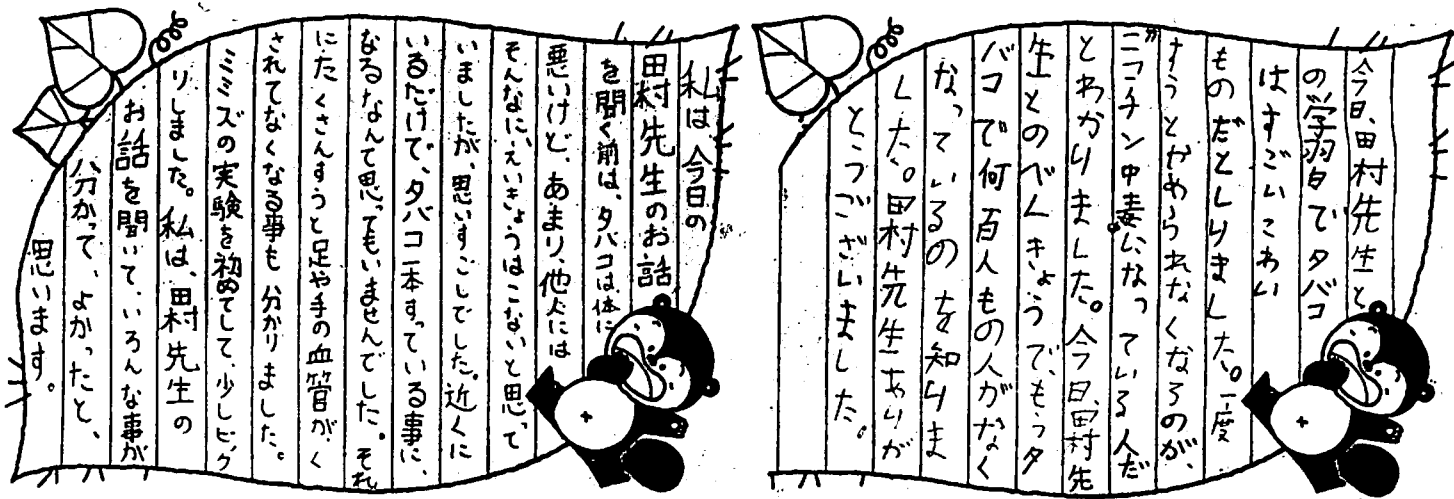 今日、田村先生と
の学習でタバコ
はすごいこわい
ものだとしりました。一度
すうとやめられなくなるのが、
ニコチン中毒になっている人だ
とわかりました。今日、田村先
生とのべんきょうで、もうタ
バコで何百人もの人がなく
なっているのを知りま
した。田村先生ありが
とうございました。
私は、今日の
田村先生のお話
を聞く前は、タバコは、体に
悪いけど、あまり、他人には
そんなに、えいきょうはこないと思って
いましたが、思いすごしでした。近くに
いるだけで、タバコ一本すっている事に、
なるなんて思ってもいませんでした。それ
にたくさんすうと足や手の血管が、く
さされてなくなる事も分かりました。
ミミズの実験を初めてして、少しビック
リしました。私は、田村先生の
お話を聞いて、いろんな事が
分かって、よかったと、
思います。